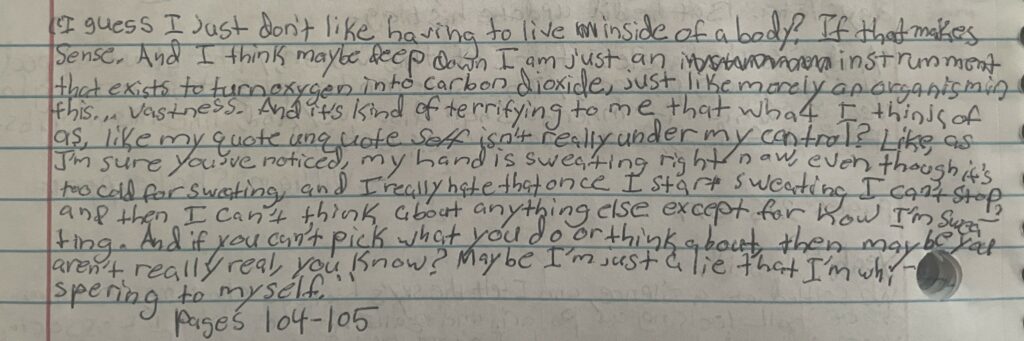 "I guess I just don't like having to live inside of a body? If that makes
sense. And I think maybe deep down I am just an instrunment
that exists to turn oxygen into carbon dioxide, just like merely an organism in
this... vastness. And it's kind of terrifying to me that what I think of
as, like my quote unquote self isn't really under my control? Like, as
I'm sure you've noticed, my hand is sweating right now, even though it's
too cold for swating, and I really hate that once I start sweating I can't stop,
and then I can't think about anything else except for how I'm swea
ting. And if you can't pick what you do or think about, then maybe you
aren't really real, you know? Maybe I'm just a lie that I'm whi-
spering to myself."
pages 104-105